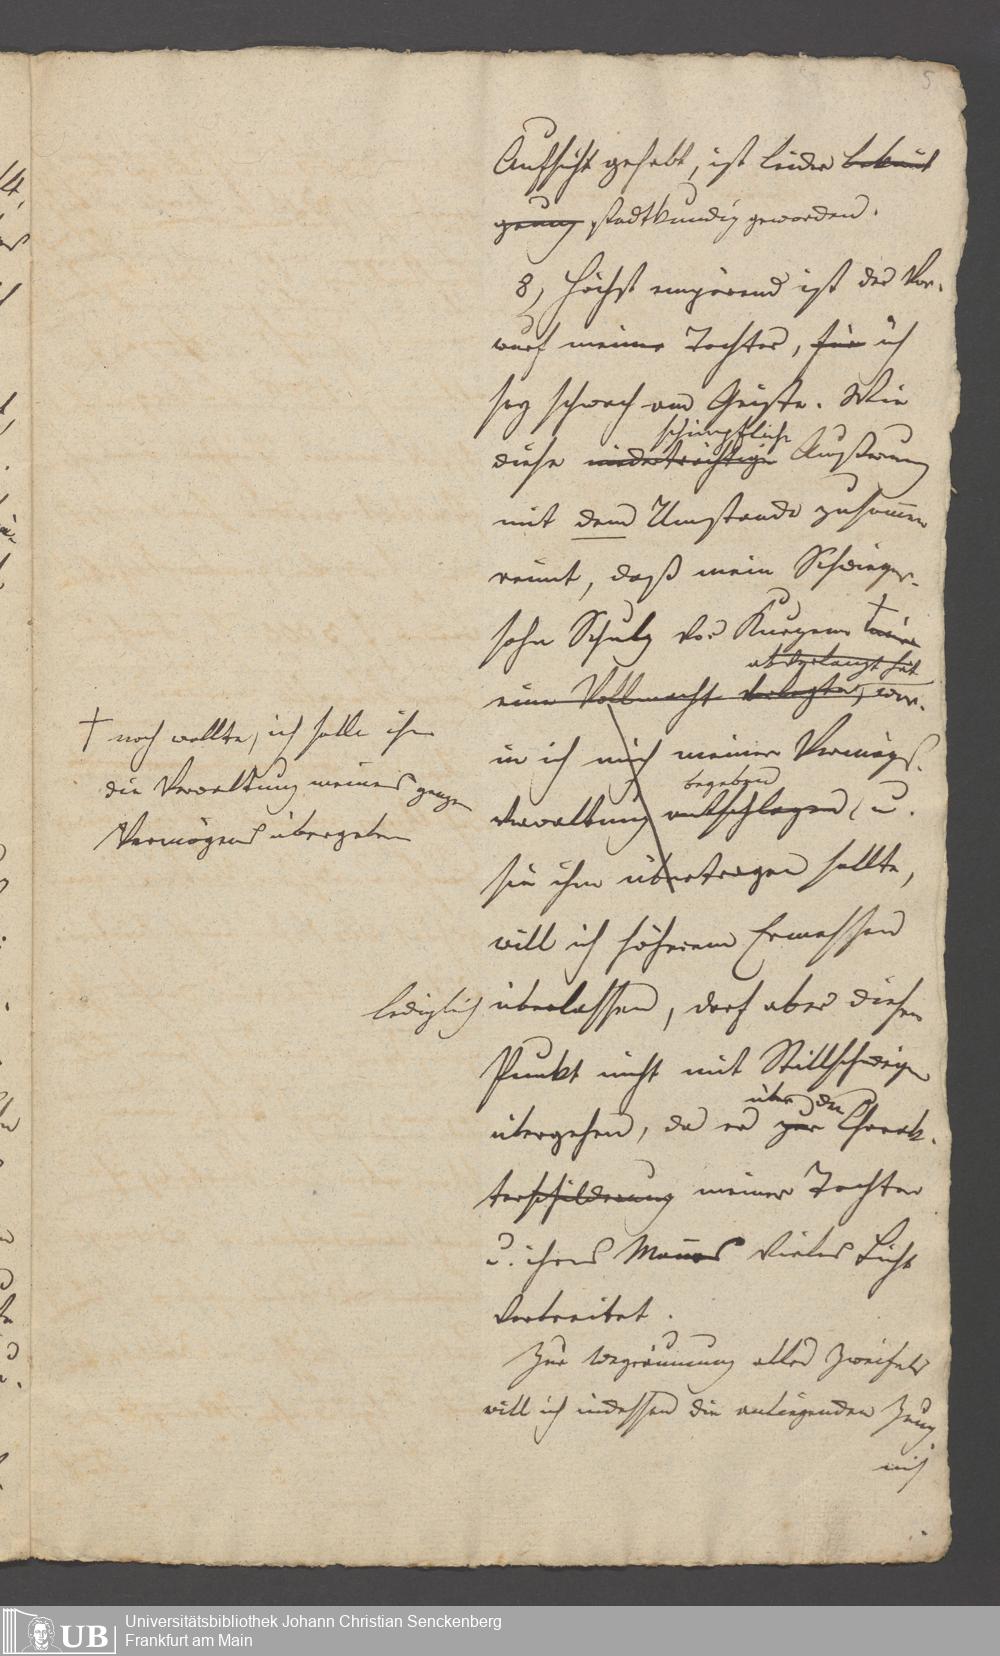 5
Aufsicht gehabt, ist leider bekant
genug stadtkundig geworden.
8, Höchst empörend ist der Vor-
wurf meiner Tochter, für ich
sey schwach am Geiste. Wie
schimpfliche
diese niederträchtige Äußerung
mit dem Umstande zusammen
reimt, daß mein Schwieger-
sohn Schulz vor Kurzem †
abverlangt hat
eine Vollmacht verlegte, wor-
in ich mich meiner Vermögs-
begeben
verwaltung entschlagen, u.
sie ihm übertragen sollte,
will ich höherem Ermessen
lediglich überlassen, darf aber diesen
Punkt nicht mit Stillschweigen
über den
übergehen, da er zur Charak-
terschilderung meiner Tochter
u. ihres Mannes vieles Licht
verbreitet.
Zur Wegräumung alles Zweifels
will ich indessen die anliegenden Zeug
niß
† noch wollte, ich solle ihm
die Verwaltung meines ganzen
Vermögens übergeben
UB
Universitätsbibliothek Johann Christian Senckenberg
Frankfurt am Main